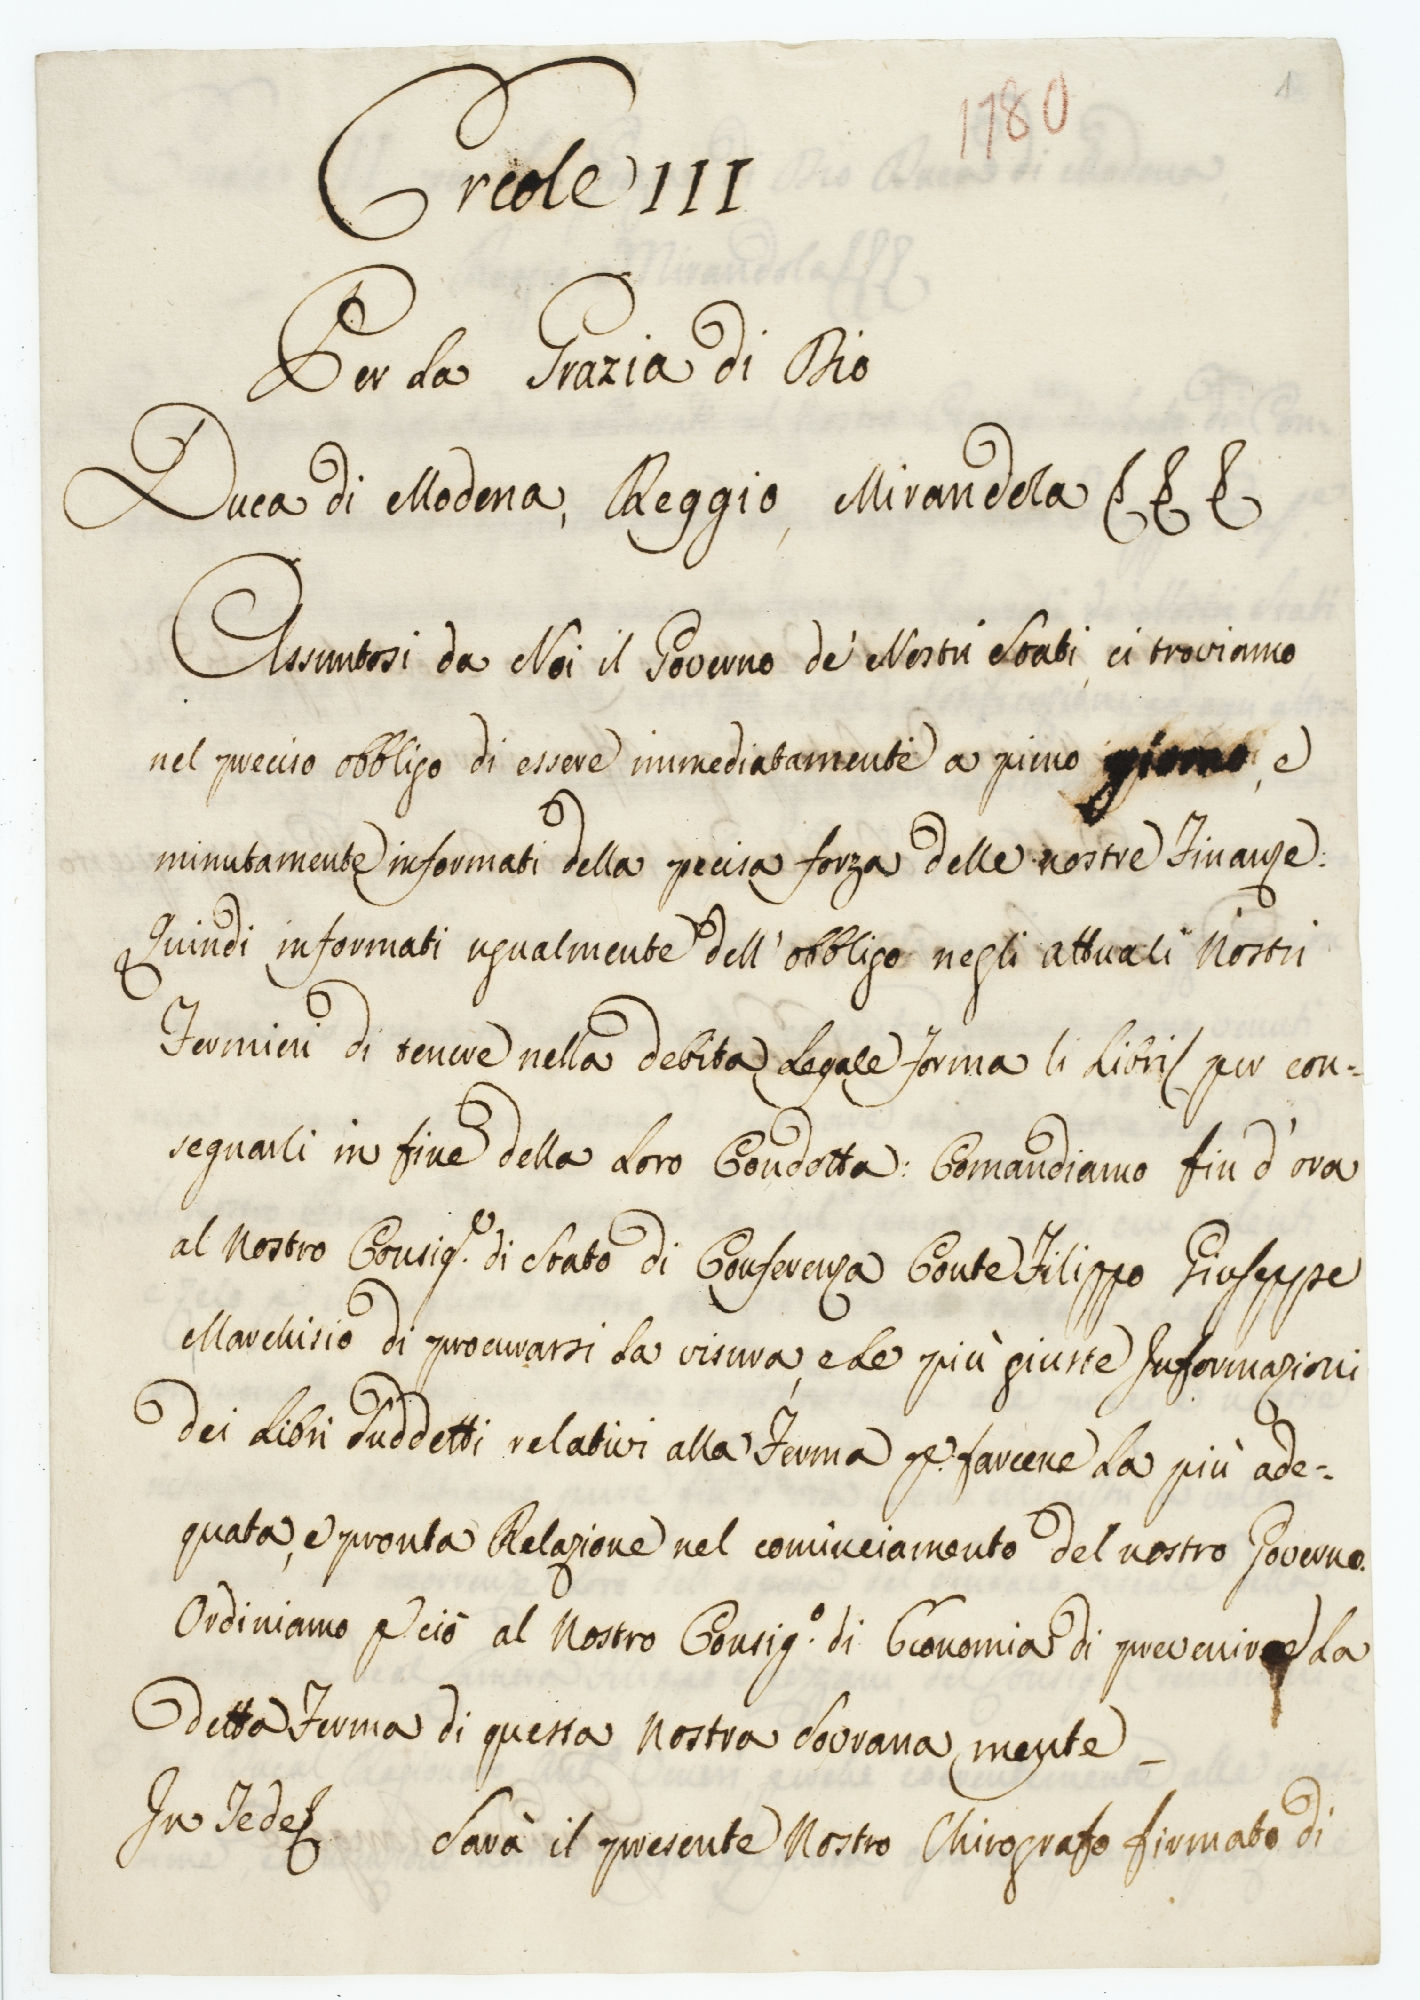 1780
1
Ercole III
Per La Grazia di Dio
Duca di Modena, Reggio, Mirandola &c &c &c
Assuntosi da Noi il Governo de' Nostri Stati, ci troviamo
nel preciso obbligo di essere immediatamente a pieno giorno, e
minutamente informati della precisa forza delle nostre Finanze:
Quindi informati ugualmente dell'obbligo negli attuali Nostri
Fermieri di tenere nella debita Legale forma li Libri per con=
segnarli in fine della Loro Condotta: Comandiamo fin d'ora
al Nostro Consig.e di Stato di Conferenza Conte Filippo Giuseppe
Marchisio di procurarsi La visura, e Le più giuste Informazioni
dei Libri Suddetti relativi alla Ferma p. farcene La più ade=
quata, e pronta Relazione nel cominciamento del nostro Governo.
Ordiniamo p ciò al Nostro Consig.o di Economia di prevenire La
detta Ferma di questa Nostra Sovrana mente _
In Fede Sarà il presente Nostro Chirografo firmato di